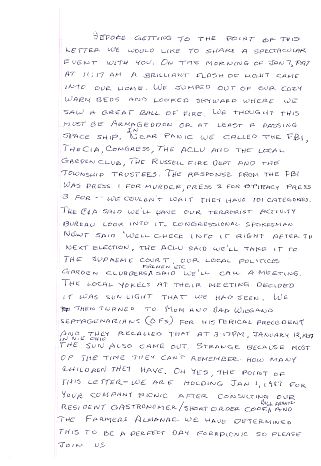 BEFORE GETTING TO THE POINT OF THIS
LETTER WE WOULD LIKE TO SHARE A SPECTACULAR
EVENT WITH YOU. ON THE MORNING OF JAN 7, 1997
AT 11:17 AM A BRILLIANT FLASH OF LIGHT CAME
INTO OUR HOME. WE JUMPED OUT OF OUR COZY
WARM BEDS AND LOOKED SKYWARD WHERE WE
SAW A GREAT BALL OF FIRE. WE THOUGHT THIS
MUST BE ARMAGEDDON OR AT LEAST A PASSING
SPACE SHIP. IN OUR PANIC WE CALLED THE FBI,
THE CIA, CONGRESS, THE ACLU AND THE LOCAL
GARDEN CLUB, THE RUSSELL FIRE DEPT AND THE
TOWNSHIP TRUSTEES. THE RESPONSE FROM THE FBI
WAS PRESS 1 FOR MURDER, PRESS 2 FOR PRESS
3 FOR - WE COULDN'T WAIT THEY HAVE 101 CATEGORIES.
THE CIA SAID WE'LL HAVE OUR TERRORIST ACTIVITY
BUREAU LOOK INTO IT. CONGRESSIONAL SPOKESMAN
NEWT SAID "WE'LL CHECK INTO IT RIGHT AFTER THE
NEXT ELECTION, THE ACLU SAID WE'LL TAKE IT TO
THE SUPREME COURT, OUR LOCAL POLITICOS
FIREMEN ETC
GARDEN CLUBBERS SAID WE'LL CALL A MEETING.
THE LOCAL YOKELS AT THEIR MEETING DECIDED
IT WAS SUNLIGHT THAT WE HAD SEEN. WE
THEN TURNED TO MOM AND DAD WIEGAND
SEPTAGENARIANS (OFS) FOR HISTORICAL PRECEDENT
AND THEY RECALLED THAT AT 3:17PM, JANUARY 13,
THE SUN ALSO CAME OUT. STRANGE BECAUSE MOST
OF THE TIME THEY CAN'T REMEMBER HOW MANY
CHILDREN THEY HAVE. OH YES, THE POINT OF
THIS LETTER - WE ARE HOLDING JAN 1, FOR
YOUR COMPANY PICNIC AFTER CONSULTING OUR
RESIDENT GASTRONOMER/SHORT ORDER COOK AND
THE FARMERS ALMANAC WE HAVE DETERMINED
THIS TO BE A PERFECT DAY FOR PICNIC SO PLEASE
JOIN US